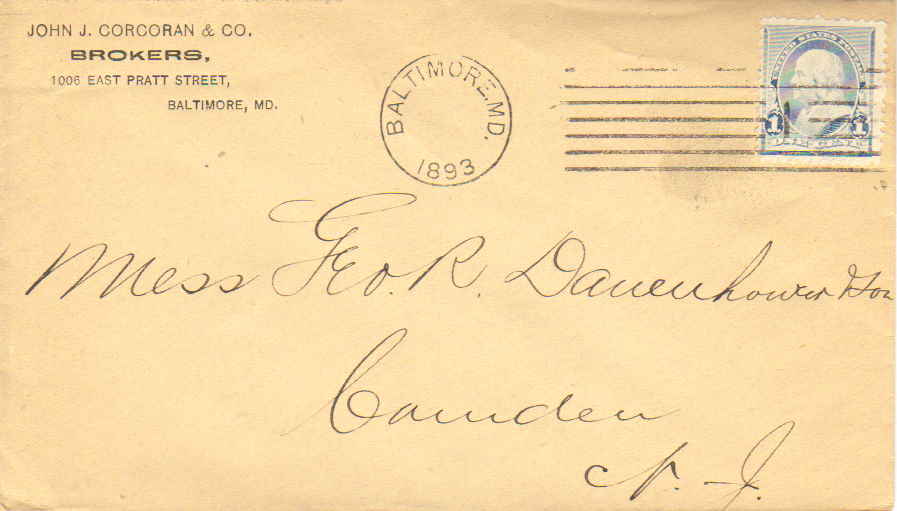 JOHN J. CORCORAN & CO.
BROKERS,
1006 EAST PRATT STREET,
BALTIMORE, MD.
BALTIMORE, MD.
1893
UNITED STATES POSTAGE
1 1
Mess Geo. R. Danenhower & Son
Camden
N. J.